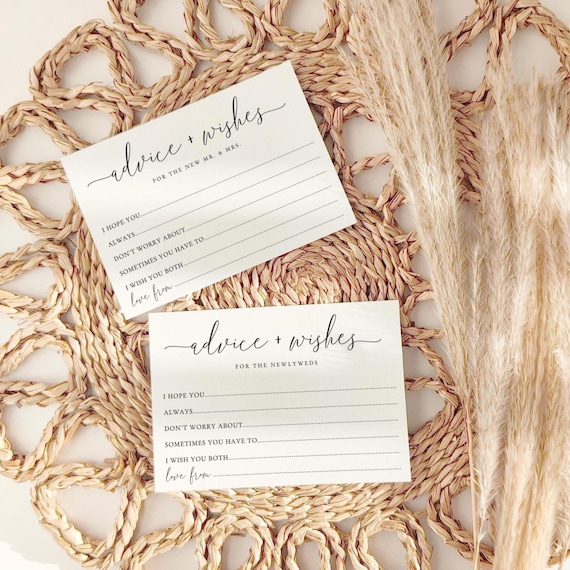 advice + wishes
FOR THE NEW MR. & MRS.
I HOPE YOU
ALWAYS
DON'T WORRY ABOUT
SOMETIMES YOU HAVE TO
I WISH YOU BOTH
love from
advice + wishes
FOR THE NEWLYWEDS
I HOPE YOU
ALWAYS
DON'T WORRY ABOUT
SOMETIMES YOU HAVE TO
I WISH YOU BOTH
love from